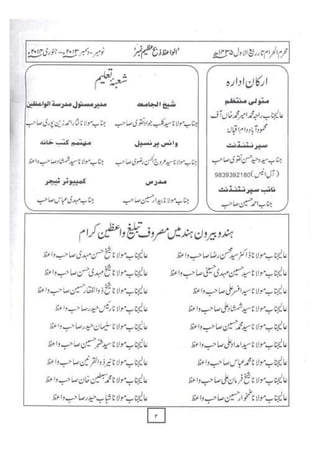 محرم الحرام تا ربیع الاول ۱۴۳۵ھ
"الواعظ ذبح عظیم نمبر"
نومبر - دسمبر ۲۰۱۳ء - جنوری ۲۰۱۴ء
ارکان ادارہ
متولی منتظم
عالیجناب راجہ محمد امیر محمد خاں آف
محمود آباد دام اقبالہ
سپرنٹنڈنٹ
جناب سید وحید حسن نقوی صاحب
9839392180
نائب سپرنٹنڈنٹ
جناب احمد حسین صاحب
شعبۂ تعلیم
شیخ الجامعہ
جناب مولانا سید کلب جواد نقوی صاحب
وائس پرنسپل
جناب مولانا سید
مدرس
جناب مولانا
مدیر مسئول مدرسۃ الواعظین
جناب مولانا نثار احمد زین پوری صاحب
مہتمم کتب خانہ
جناب مولانا سید شمشاد صاحب
کمپیوٹر ٹیچر
جناب مہدی عباس صاحب
ہند و بیرون ہند میں مصروف تبلیغ واعظین کرام
عالیجناب مولانا ڈاکٹر سید محسن رضا صاحب واعظ
عالیجناب مولانا شیخ حسن مہدی صاحب واعظ
عالیجناب مولانا سید حسین مہدی حسینی صاحب واعظ
عالیجناب مولانا شیخ مہدی حسن صاحب واعظ
عالیجناب مولانا سید افسر علی صاحب واعظ
عالیجناب مولانا شیخ ذوالفقار حسین صاحب واعظ
عالیجناب مولانا سید شمشاد علی صاحب واعظ
عالیجناب مولانا رئیس حیدر صاحب واعظ
عالیجناب مولانا سید محمد حسین صاحب واعظ
عالیجناب مولانا سلیمان حیدر صاحب واعظ
عالیجناب مولانا سید محمد حسن صاحب واعظ
عالیجناب مولانا سید حسین صاحب واعظ
عالیجناب مولانا محمد عباس صاحب واعظ
عالیجناب مولانا نیر ذوالقرنین صاحب واعظ
عالیجناب مولانا شیخ فرمان علی صاحب واعظ
عالیجناب مولانا محمد سبطین خان صاحب واعظ
عالیجناب مولانا غمخوار حسین صاحب واعظ
عالیجناب مولانا شباب حیدر صاحب واعظ
۲